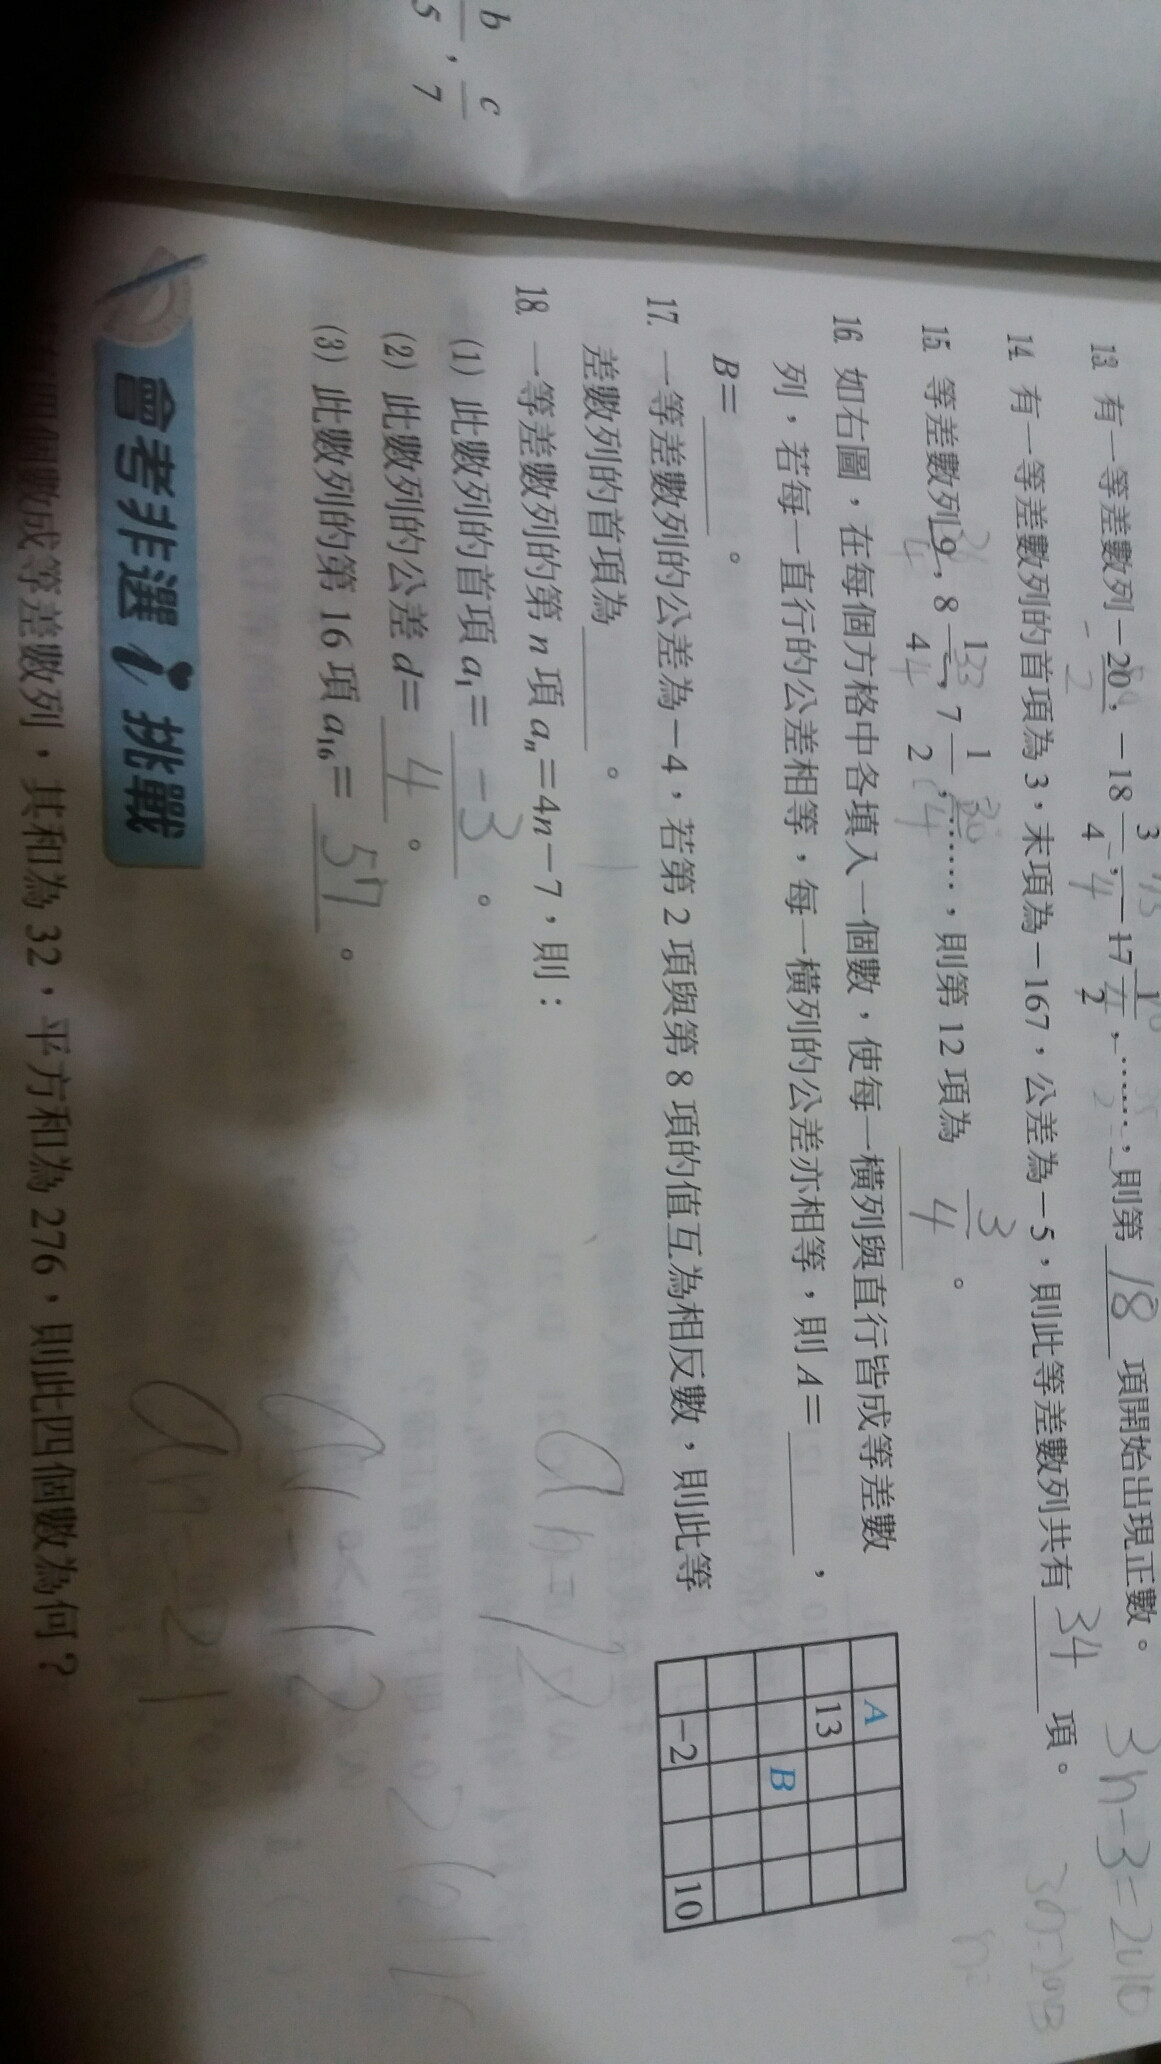 b/5, c/7
13. 有一等差數列-20, -18 3/4, -17 1/2, ……, 則第 18 項開始出現正數。
14. 有一等差數列的首項為3，末項為-167，公差為-5，則此等差數列共有 34 項。
15. 等差數列9, 8 1/4, 7 1/2, ……, 則第12項為 3/4 。
16. 如右圖，在每個方格中各填入一個數，使每一橫列與直行皆成等差數
列，若每一直行的公差相等，每一橫列的公差亦相等，則A=____，
B=____。
A
13
B
-2 10
17. 一等差數列的公差為-4，若第2項與第8項的值互為相反數，則此等
差數列的首項為____。
18. 一等差數列的第n項aₙ=4n-7，則：
(1) 此數列的首項a₁= -3 。
(2) 此數列的公差d= 4 。
(3) 此數列的第16項a₁₆= 57 。
會考非選 挑戰
四個數成等差數列，其和為32，平方和為276，則此四個數為何？
3n-3=2010